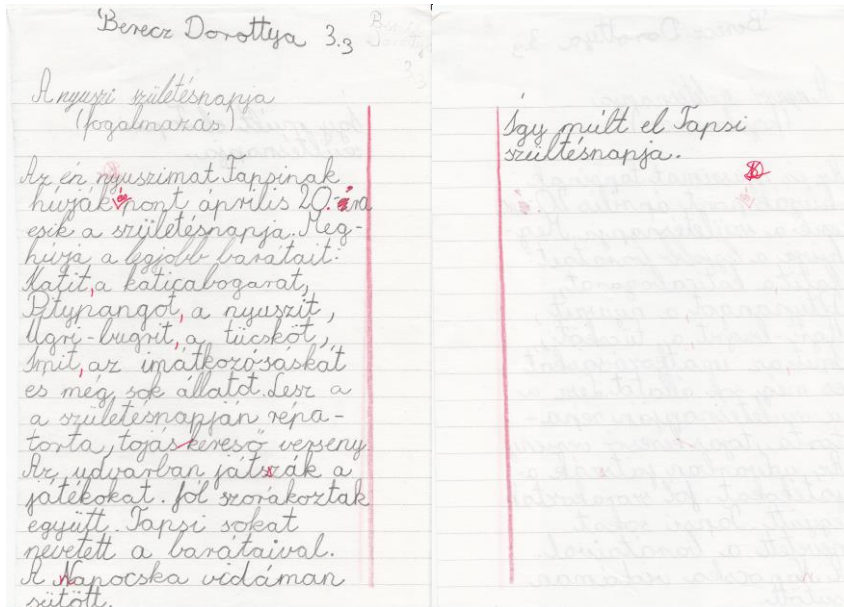 Berecz Dorottya 3.3
A nyuszi születésnapja
(fogalmazás)
Az én nyuszimat Tapsinak
hívják pont április 20.-ára
esik a születésnapja. Meg-
hívja a legjobb barátait:
Katit, a katicabogarat,
Pitypangot, a nyuszit,
Ugri-bugrit, a tücsköt,
Imit, az imátkozósáskát
es még sok állatot. Lesz a
a születésnapján répa-
torta, tojáskereső verseny.
Az udvarban játszák a
játékokat. Jól szorakoztak
együtt. Tapsi sokat
nevetett a barátaival.
A Napocska vidáman
sütött.
Így múlt el Tapsi
szültésnapja.